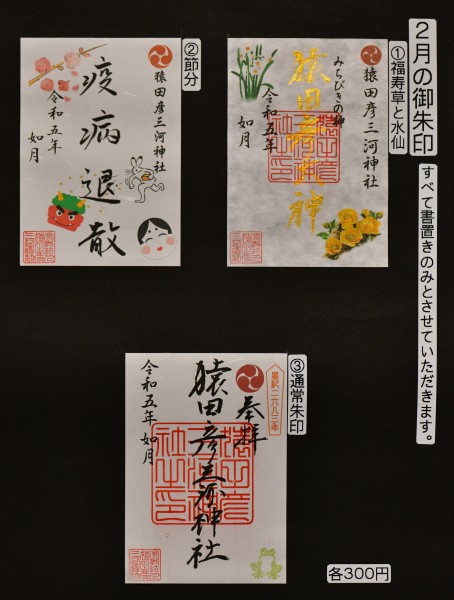 2月の御朱印
すべて書置きのみとさせていただきます。
①福寿草と水仙
猿田彦三河神社
みちびきの神
猿田彦大神
令和五年
如月
②節分
猿田彦三河神社
疫病退散
令和五年
如月
③通常朱印
皇紀二六八三年
奉拝
猿田彦三河神社
令和五年如月
各300円